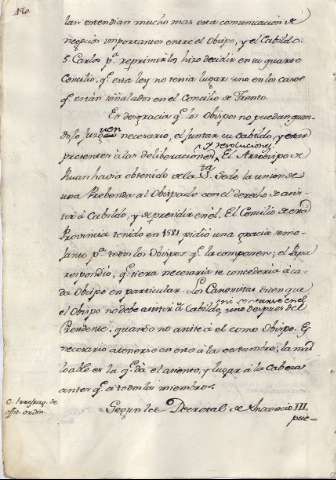 tas entendian mucho mas esta comunicacion de
negocios importantes entre el Obispo, y el Cabildo.
S. Carlos pª reprimirlos hizo decidir en su quarto
Concilio qᵉ esta ley no tenia lugar sino en los casos
qᵉ están señalados en el Concilio de Trento.
Es desgracia qᵉ los Obispos no puedan quan-
do lo juzguen necesario, el juntar su Cabildo, y estar
presentes à las deliberaciones y resoluciones. El Arzobispo de
Ruan havia obtenido de la Sᵗᵃ Sede la union de
una Prebenda al Obispado con el derecho de asis-
tir à Cabildo, y de presidir en èl. El Concilio de esta
Provincia tenido en 1581 pidiò una gracia seme-
jante pª todos los Obispos qᵉ la componen; el Papa
respondiò, qᵉ era necesario se concediera à ca-
da Obispo en particular. Los Canonistas dicen que
el Obispo no debe asistir à Cabildo, ni concurre en el sino despues del
Presidente, quando no asiste à el como Obispo. Es
necesario atenerse en esto à la costumbre, la mas
loable es la qᵉ dà el asiento, y lugar à la Cabeza
antes qᵉ à todos los miembros.
Segun les Decretal, de Inocencio III,
pue-